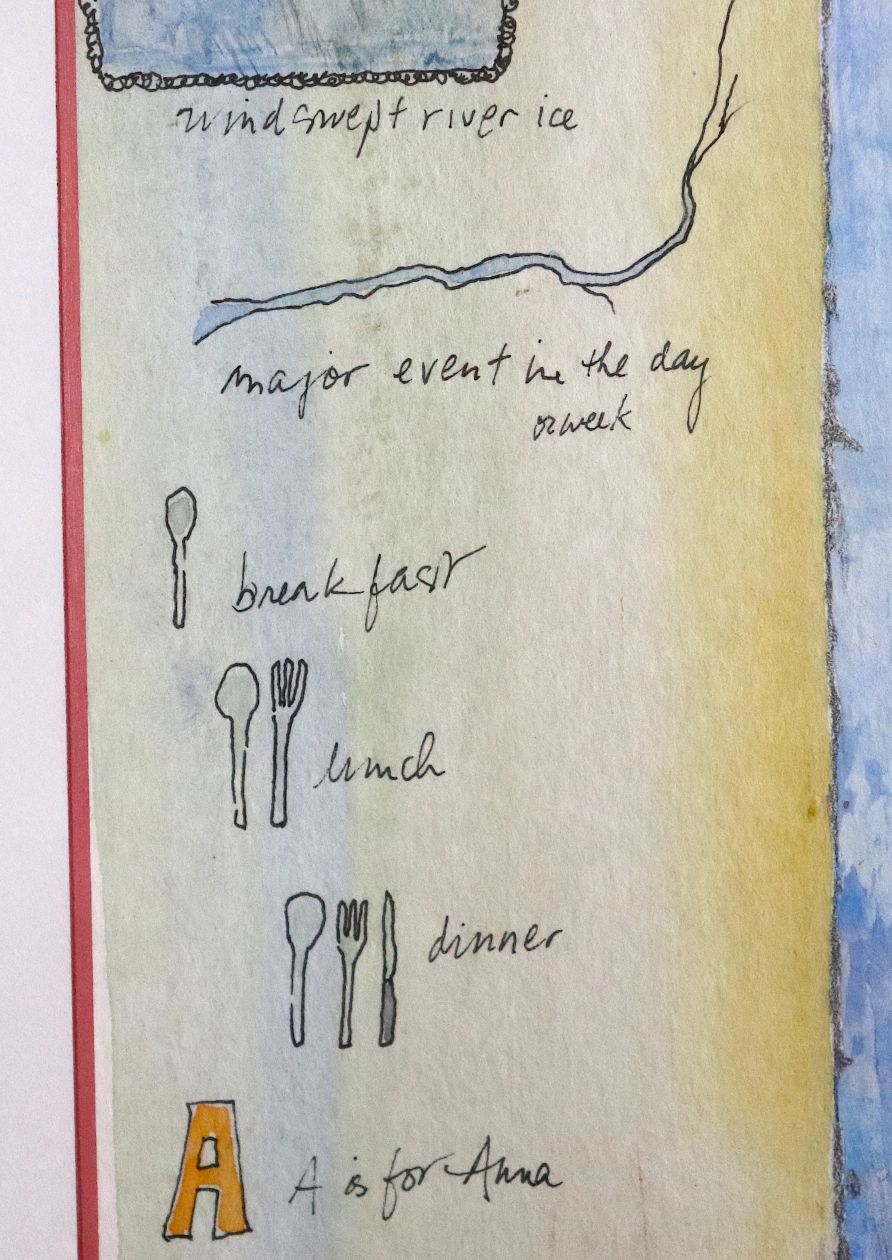 windswept river ice
major event in the day
or week
breakfast
lunch
dinner
A
A is for Anna